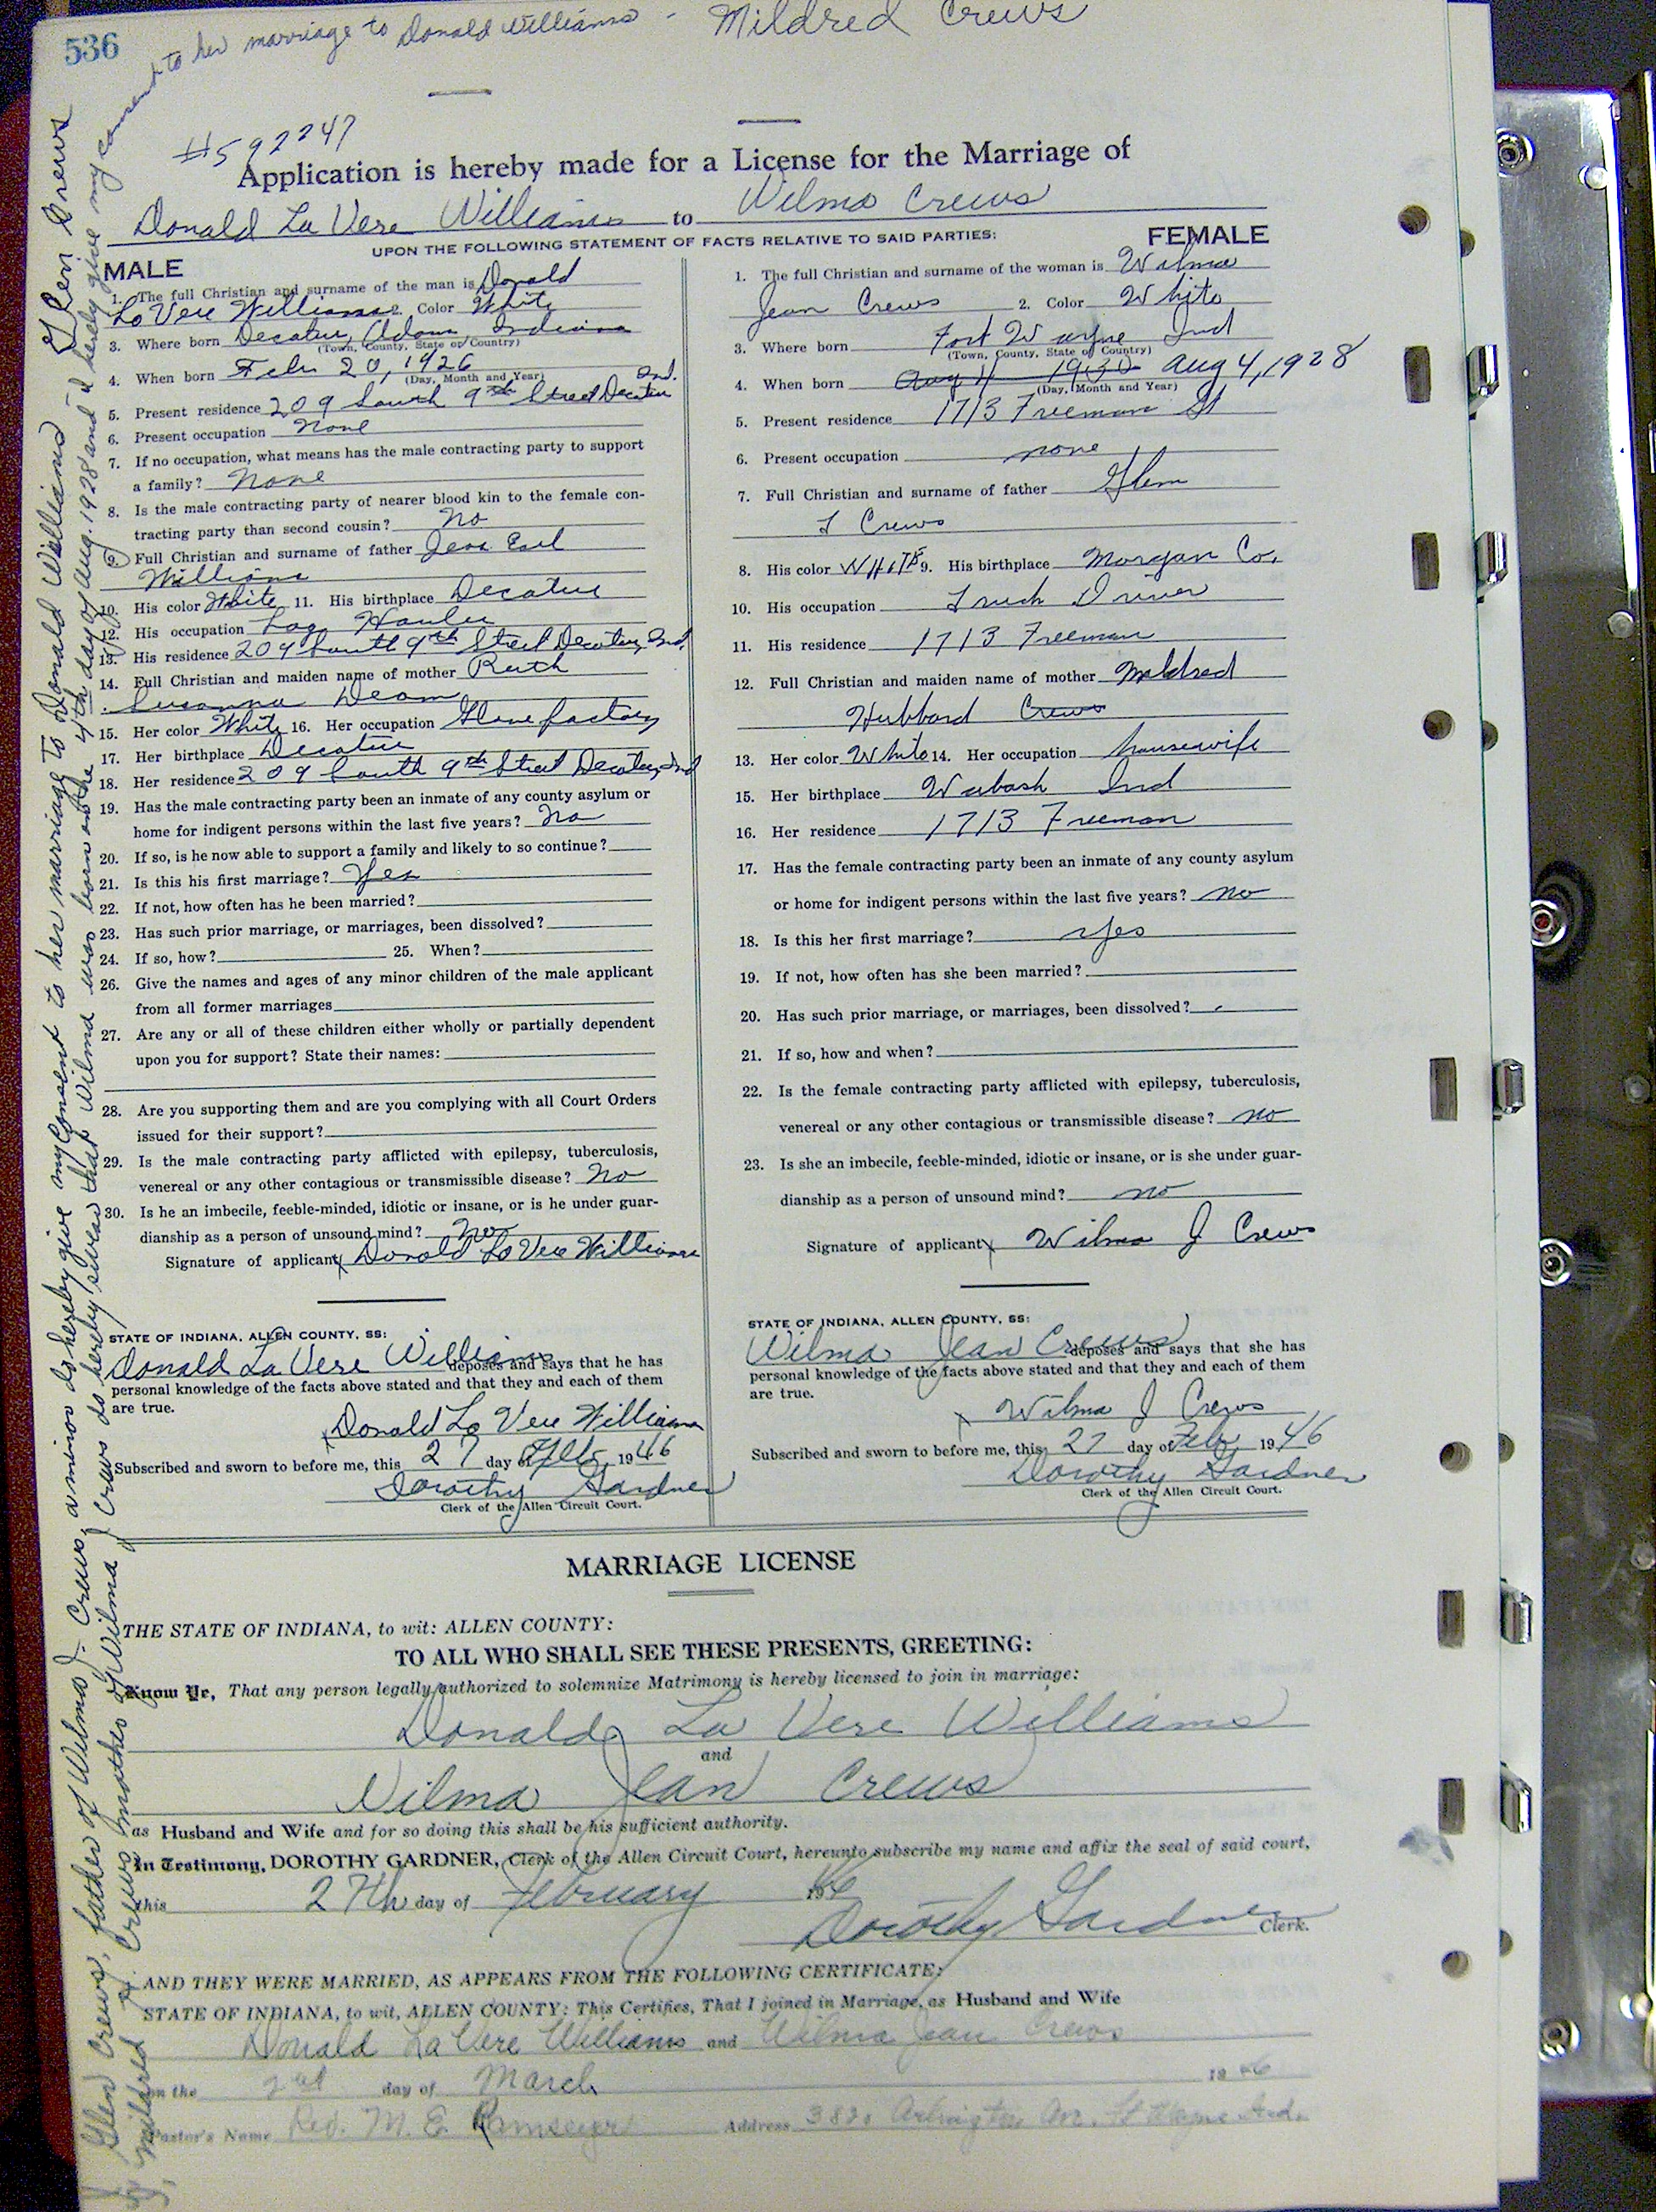 536
to her marriage to Donald Williams - Mildred Crews
#592247
Application is hereby made for a License for the Marriage of
Donald La Vere Williams to Wilma Crews
UPON THE FOLLOWING STATEMENT OF FACTS RELATIVE TO SAID PARTIES:
MALE
1. The full Christian and surname of the man is Donald
La Vere Williams 2. Color White
3. Where born Decatur, Adams, Indiana
(Town, County, State or Country)
4. When born Feb 20, 1926
(Day, Month and Year)
5. Present residence 209 South 9th Street Decatur Ind.
6. Present occupation None
7. If no occupation, what means has the male contracting party to support
a family? None
8. Is the male contracting party of nearer blood kin to the female con-
tracting party than second cousin? No
9. Full Christian and surname of father Jess Earl
Williams
10. His color White 11. His birthplace Decatur
12. His occupation Log Hauler
13. His residence 209 South 9th Street Decatur, Ind.
14. Full Christian and maiden name of mother Ruth
Susanna Deam
15. Her color White 16. Her occupation Glove factory
17. Her birthplace Decatur
18. Her residence 209 South 9th Street Decatur, Ind
19. Has the male contracting party been an inmate of any county asylum or
home for indigent persons within the last five years? No
20. If so, is he now able to support a family and likely to so continue?
21. Is this his first marriage? Yes
22. If not, how often has he been married?
23. Has such prior marriage, or marriages, been dissolved?
24. If so, how? 25. When?
26. Give the names and ages of any minor children of the male applicant
from all former marriages
27. Are any or all of these children either wholly or partially dependent
upon you for support? State their names:
28. Are you supporting them and are you complying with all Court Orders
issued for their support?
29. Is the male contracting party afflicted with epilepsy, tuberculosis,
venereal or any other contagious or transmissible disease? No
30. Is he an imbecile, feeble-minded, idiotic or insane, or is he under guar-
dianship as a person of unsound mind? No
Signature of applicant x Donald La Vere Williams
STATE OF INDIANA, ALLEN COUNTY, SS:
Donald La Vere Williams deposes and says that he has
personal knowledge of the facts above stated and that they and each of them
are true.
x Donald La Vere Williams
Subscribed and sworn to before me, this 27 day of Feb. 1946
Dorothy Gardner
Clerk of the Allen Circuit Court.
FEMALE
1. The full Christian and surname of the woman is Wilma
Jean Crews 2. Color White
3. Where born Fort Wayne Ind
(Town, County, State or Country)
4. When born Aug 4 1930 Aug 4, 1928
(Day, Month and Year)
5. Present residence 1713 Freeman St
6. Present occupation none
7. Full Christian and surname of father Glen
L Crews
8. His color WHITE 9. His birthplace Morgan Co.
10. His occupation Truck Driver
11. His residence 1713 Freeman
12. Full Christian and maiden name of mother Mildred
Hubbard Crews
13. Her color White 14. Her occupation housewife
15. Her birthplace Wabash Ind
16. Her residence 1713 Freeman
17. Has the female contracting party been an inmate of any county asylum
or home for indigent persons within the last five years? no
18. Is this her first marriage? yes
19. If not, how often has she been married?
20. Has such prior marriage, or marriages, been dissolved?
21. If so, how and when?
22. Is the female contracting party afflicted with epilepsy, tuberculosis,
venereal or any other contagious or transmissible disease? no
23. Is she an imbecile, feeble-minded, idiotic or insane, or is she under guar-
dianship as a person of unsound mind? no
Signature of applicant x Wilma J Crews
STATE OF INDIANA, ALLEN COUNTY, SS:
Wilma Jean Crews deposes and says that she has
personal knowledge of the facts above stated and that they and each of them
are true.
x Wilma J Crews
Subscribed and sworn to before me, this 27 day of Feb, 1946
Dorothy Gardner
Clerk of the Allen Circuit Court.
MARRIAGE LICENSE
THE STATE OF INDIANA, to wit: ALLEN COUNTY:
TO ALL WHO SHALL SEE THESE PRESENTS, GREETING:
Know Ye, That any person legally authorized to solemnize Matrimony is hereby licensed to join in marriage:
Donald La Vere Williams
and
Wilma Jean Crews
as Husband and Wife and for so doing this shall be his sufficient authority.
In Testimony, DOROTHY GARDNER, Clerk of the Allen Circuit Court, hereunto subscribe my name and affix the seal of said court,
this 27th day of February 1946
Dorothy Gardner Clerk.
AND THEY WERE MARRIED, AS APPEARS FROM THE FOLLOWING CERTIFICATE:
STATE OF INDIANA, to wit, ALLEN COUNTY: This Certifies, That I joined in Marriage, as Husband and Wife
Donald La Vere Williams and Wilma Jean Crews
on the day of March 1946
Pastor's Name Rev. M. E. Ramseyer Address 3820 Arlington Av. Ft Wayne Ind.
I, Glen Crews, father of Wilma J. Crews, a minor do hereby give my consent to her marriage to Donald Williams Glen Crews
I, Mildred Crews mother of Wilma J Crews do hereby swear that Wilma was born on the 4th day of Aug 1928 and I hereby give my consent